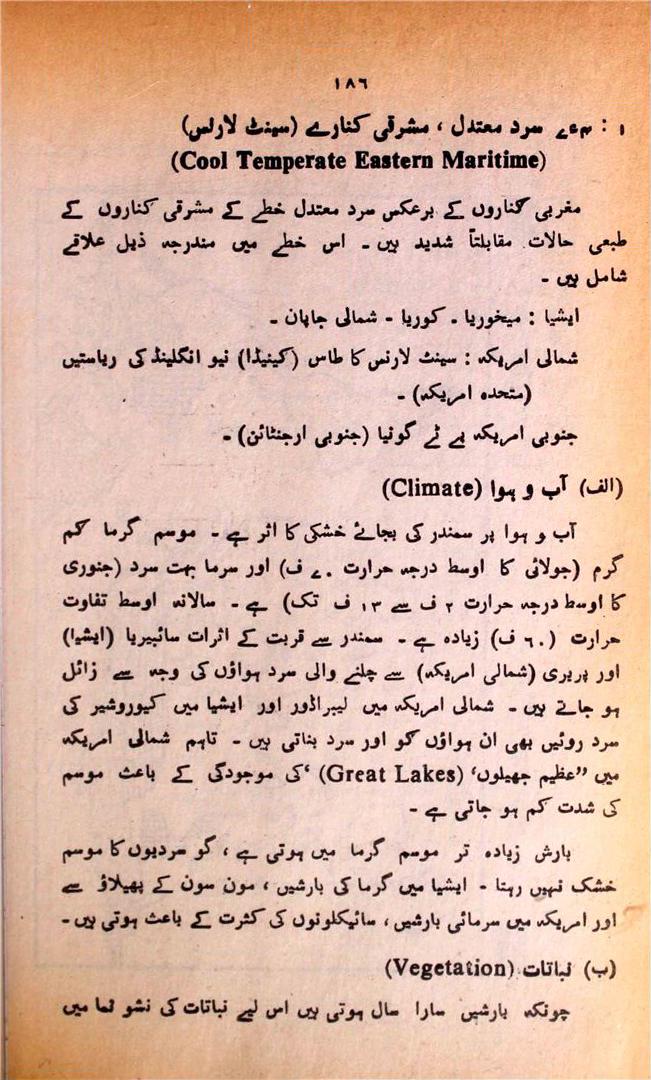 ۱۸٦
۱ : ۴ء۷ سرد معتدل ، مشرقی کنارے (سینٹ لارنس)
(Cool Temperate Eastern Maritime)
مغربی کناروں کے برعکس سرد معتدل خطے کے مشرقی کناروں کے
طبعی حالات مقابلتاً شدید ہیں - اس خطے میں مندرجہ ذیل علاقے
شامل ہیں -
ایشیا : میخوریا - کوریا - شمالی جاپان -
شمالی امریکہ : سینٹ لارنس کا طاس (کینیڈا) نیو انگلینڈ کی ریاستیں
(متحدہ امریکہ) -
جنوبی امریکہ پے ٹے گونیا (جنوبی ارجنٹائن) -
(الف) آب و ہوا (Climate)
آب و ہوا پر سمندر کی بجائے خشکی کا اثر ہے - موسم گرما کم
گرم (جولائی کا اوسط درجہ حرارت ۷۰ ف) اور سرما بہت سرد (جنوری
کا اوسط درجہ حرارت ۲ ف سے ۱۳ ف تک) ہے - سالانہ اوسط تفاوت
حرارت (٦۰ ف) زیادہ ہے - سمندر سے قربت کے اثرات سائبیریا (ایشیا)
اور پریری (شمالی امریکہ) سے چلنے والی سرد ہواؤں کی وجہ سے زائل
ہو جاتے ہیں - شمالی امریکہ میں لیبراڈور اور ایشیا میں کیوروشیر کی
سرد روئیں بھی ان ہواؤں کو اور سرد بناتی ہیں - تاہم شمالی امریکہ
میں ”عظیم جھیلوں‘ (Great Lakes) ‘کی موجودگی کے باعث موسم
کی شدت کم ہو جاتی ہے -
بارش زیادہ تر موسم گرما میں ہوتی ہے ، گو سردیوں کا موسم
خشک نہیں رہتا - ایشیا میں گرما کی بارشیں ، مون سون کے پھیلاؤ سے
اور امریکہ میں سرمائی بارشیں ، سائیکلونوں کی کثرت کے باعث ہوتی ہیں -
(ب) نباتات (Vegetation)
چونکہ بارشیں سارا سال ہوتی ہیں اس لیے نباتات کی نشو نما میں